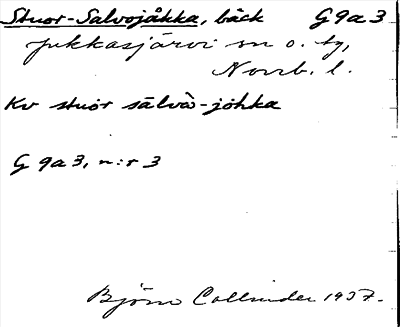 Stuor-Salvojåkka, bäck G9a3
Jukkasjärvi sn o. tg,
Norrb. l.
Kv stuor sālvà-johka
G 9a3, n:r 3
Björn Collinder 1937.